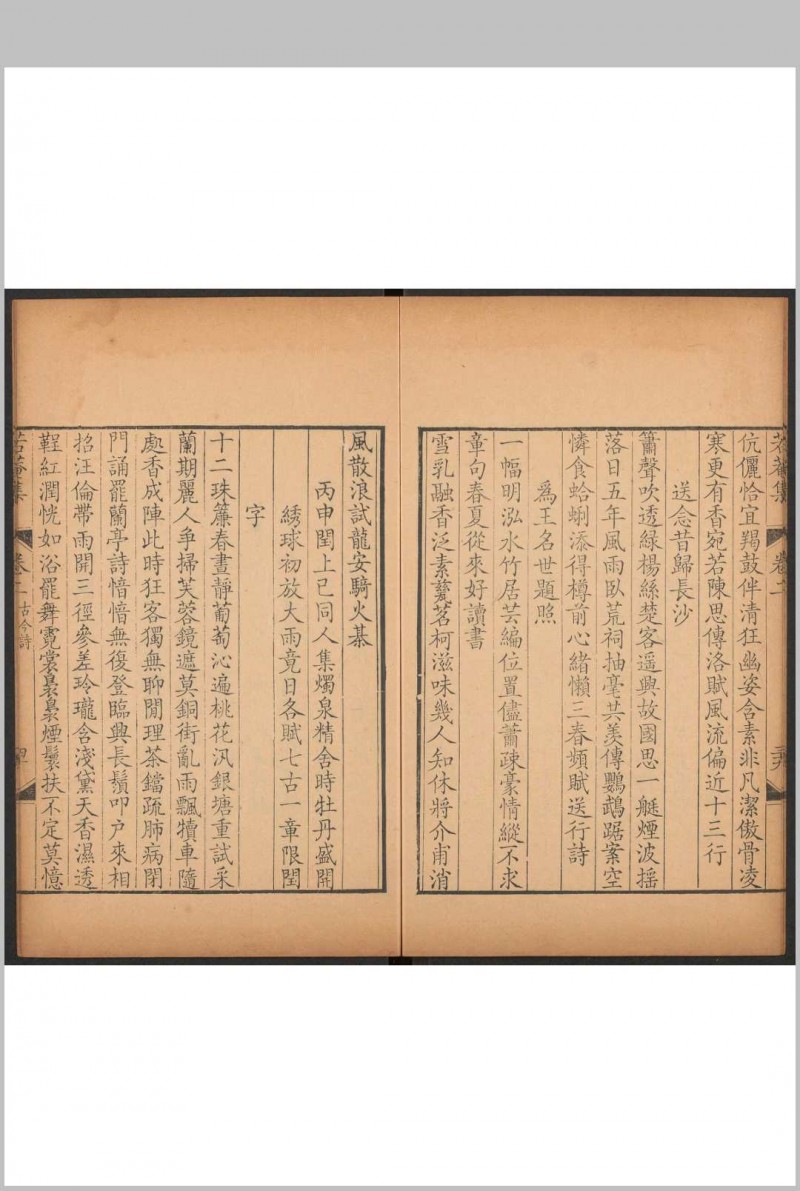 伉儷恰宜羯鼓伴清狂幽姿含素非凡潔傲骨凌
寒更有香宛若陳思傳洛賦風流偏近十三行
送念昔歸長沙
簫聲吹透綠楊絲楚客遥興故國思一艇煙波摇
落日五年風雨臥荒祠抽毫共羨傳鸚鵡踞案空
憐食蛤蜊添得樽前心緒懶三春頻賦送行詩
爲王名世題照
一幅明泓水竹居芸編位置儘蕭疎豪情縱不求
章句春夏從來好讀書
雪乳融香泛素甆茗柯滋味幾人知休將介甫消
風散浪試龍安騎火棊
丙申閏上巳同人集燭泉精舍時牡丹盛開
綉球初放大雨竟日各賦七古一章限閏
字
十二珠簾春晝靜葡萄沁遍桃花汎銀塘重試采
蘭期麗人爭掃芙蓉鏡遮莫銅街亂雨飄犢車隨
處香成陣此時狂客獨無聊閒理茶鐺疏肺病閉
門誦罷蘭亭詩愔愔無復登臨興長鬚叩户來相
招汪倫帶雨開三徑參差玲瓏含淺黛天香濕透
鞓紅潤恍如浴罷舞霓裳裊裊煙鬟扶不定莫憶
卷二 古今詩